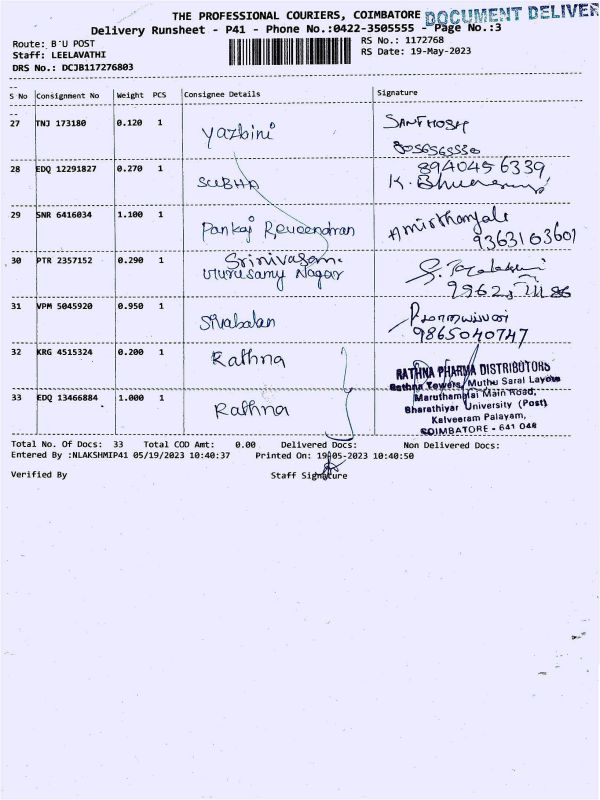 THE PROFESSIONAL COURIERS, COIMBATORE DOCUMENT DELIVER
Delivery Runsheet - P41 - Phone No.:0422-3505555 - Page No.:3
Route: B`U POST
RS No.: 1172768
Staff: LEELAVATHI
RS Date: 19-May-2023
DRS No.: DCJB117276803
S No Consignment No Weight PCS Consignee Details Signature
27 TNJ 173180 0.120 1 Yazbini SANTHOSH
8056565550
28 EDQ 12291827 0.270 1 SUBHA 8940456339
29 SNR 6416034 1.100 1 Pankaj Raveendran Amirthanjali
9363163601
30 PTR 2357152 0.290 1 Srinivasan.
Nagar
31 VPM 5045920 0.950 1 Sivabalan
9865040747
32 KRG 4515324 0.200 1 Rathna
33 EDQ 13466884 1.000 1 Rathna
RATHNA PHARMA DISTRIBUTORS
Rathna Towers, Muthu Saral Layout
Maruthamalai Main Road,
Bharathiyar University (Post)
Kalveeram Palayam,
COIMBATORE - 641 046
Total No. Of Docs: 33 Total COD Amt: 0.00 Delivered Docs: Non Delivered Docs:
Entered By :NLAKSHMIP41 05/19/2023 10:40:37 Printed On: 19-05-2023 10:40:50
Verified By Staff Signature